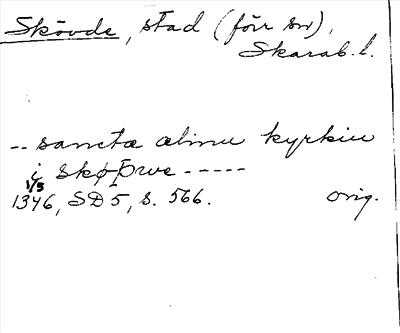 Skövde, stad (förr sn),
Skarab. l.
-- sancta elinu kyrkiu
i skøþwe -----
1/5
1346, SD 5, s. 566. orig.